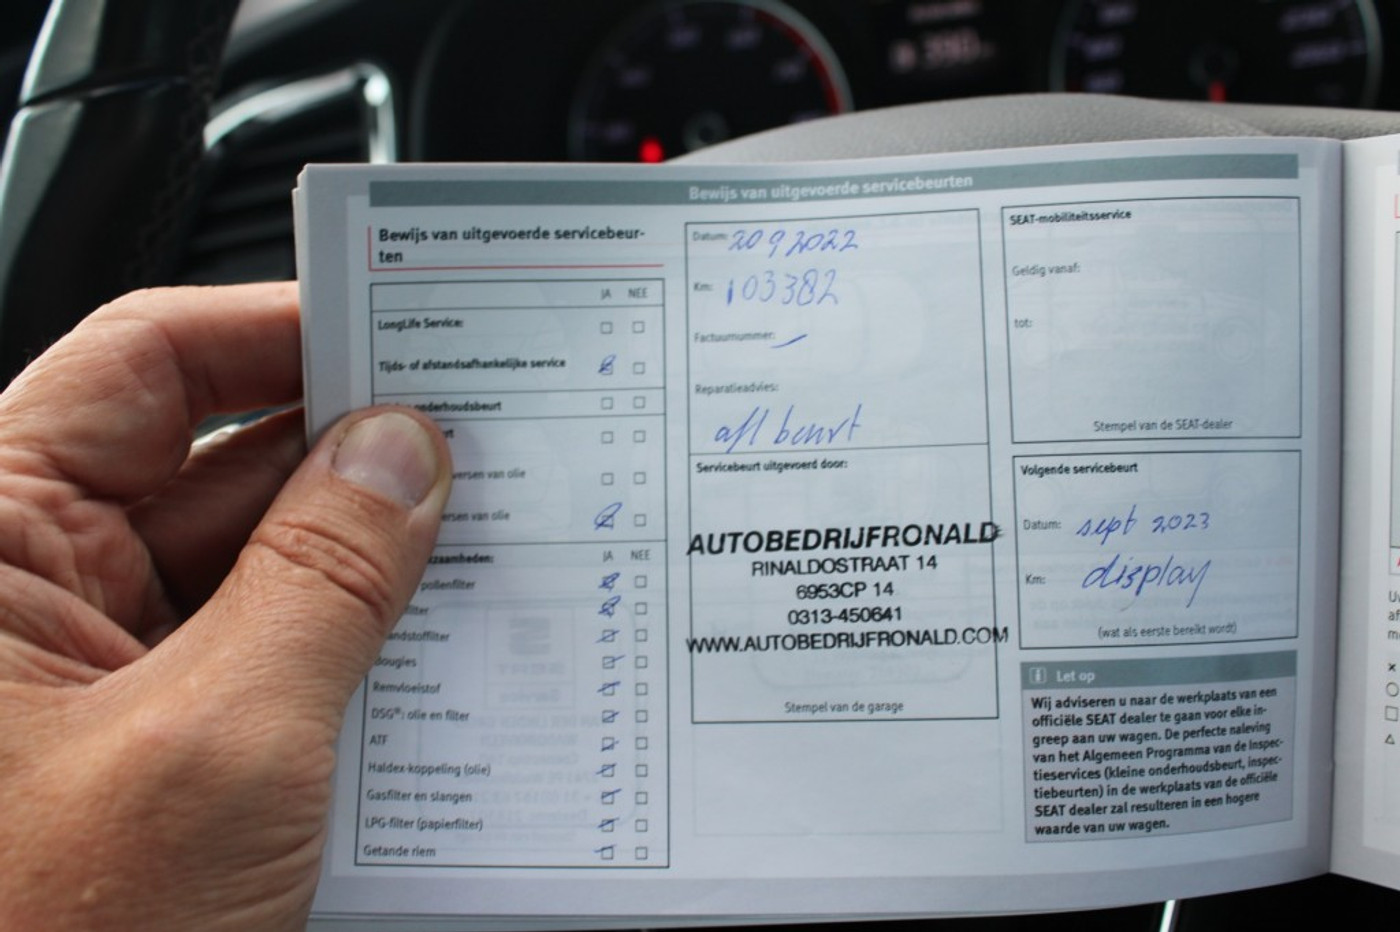 Bewijs van uitgevoerde servicebeurten
Bewijs van uitgevoerde servicebeur-
ten
JA NEE
LongLife Service:
Tijds- of afstandsafhankelijke service
onderhoudsbeurt
rt
versen van olie
ersen van olie
kzaamheden: JA NEE
pollenfilter
filter
andstoffilter
Bougies
Remvloeistof
DSG®: olie en filter
ATF
Haldex-koppeling (olie)
Gasfilter en slangen
LPG-filter (papierfilter)
Getande riem
Datum: 20 9 2022
Km: 103382
Factuurnummer:
Reparatieadvies:
afl beurt
Servicebeurt uitgevoerd door:
AUTOBEDRIJFRONALD
RINALDOSTRAAT 14
6953CP 14
0313-450641
WWW.AUTOBEDRIJFRONALD.COM
Stempel van de garage
SEAT-mobiliteitsservice
Geldig vanaf:
tot:
Stempel van de SEAT-dealer
Volgende servicebeurt
Datum: sept 2023
Km: display
(wat als eerste bereikt wordt)
i Let op
Wij adviseren u naar de werkplaats van een
officiële SEAT dealer te gaan voor elke in-
greep aan uw wagen. De perfecte naleving
van het Algemeen Programma van de Inspec-
tieservices (kleine onderhoudsbeurt, inspec-
tiebeurten) in de werkplaats van de officiële
SEAT dealer zal resulteren in een hogere
waarde van uw wagen.